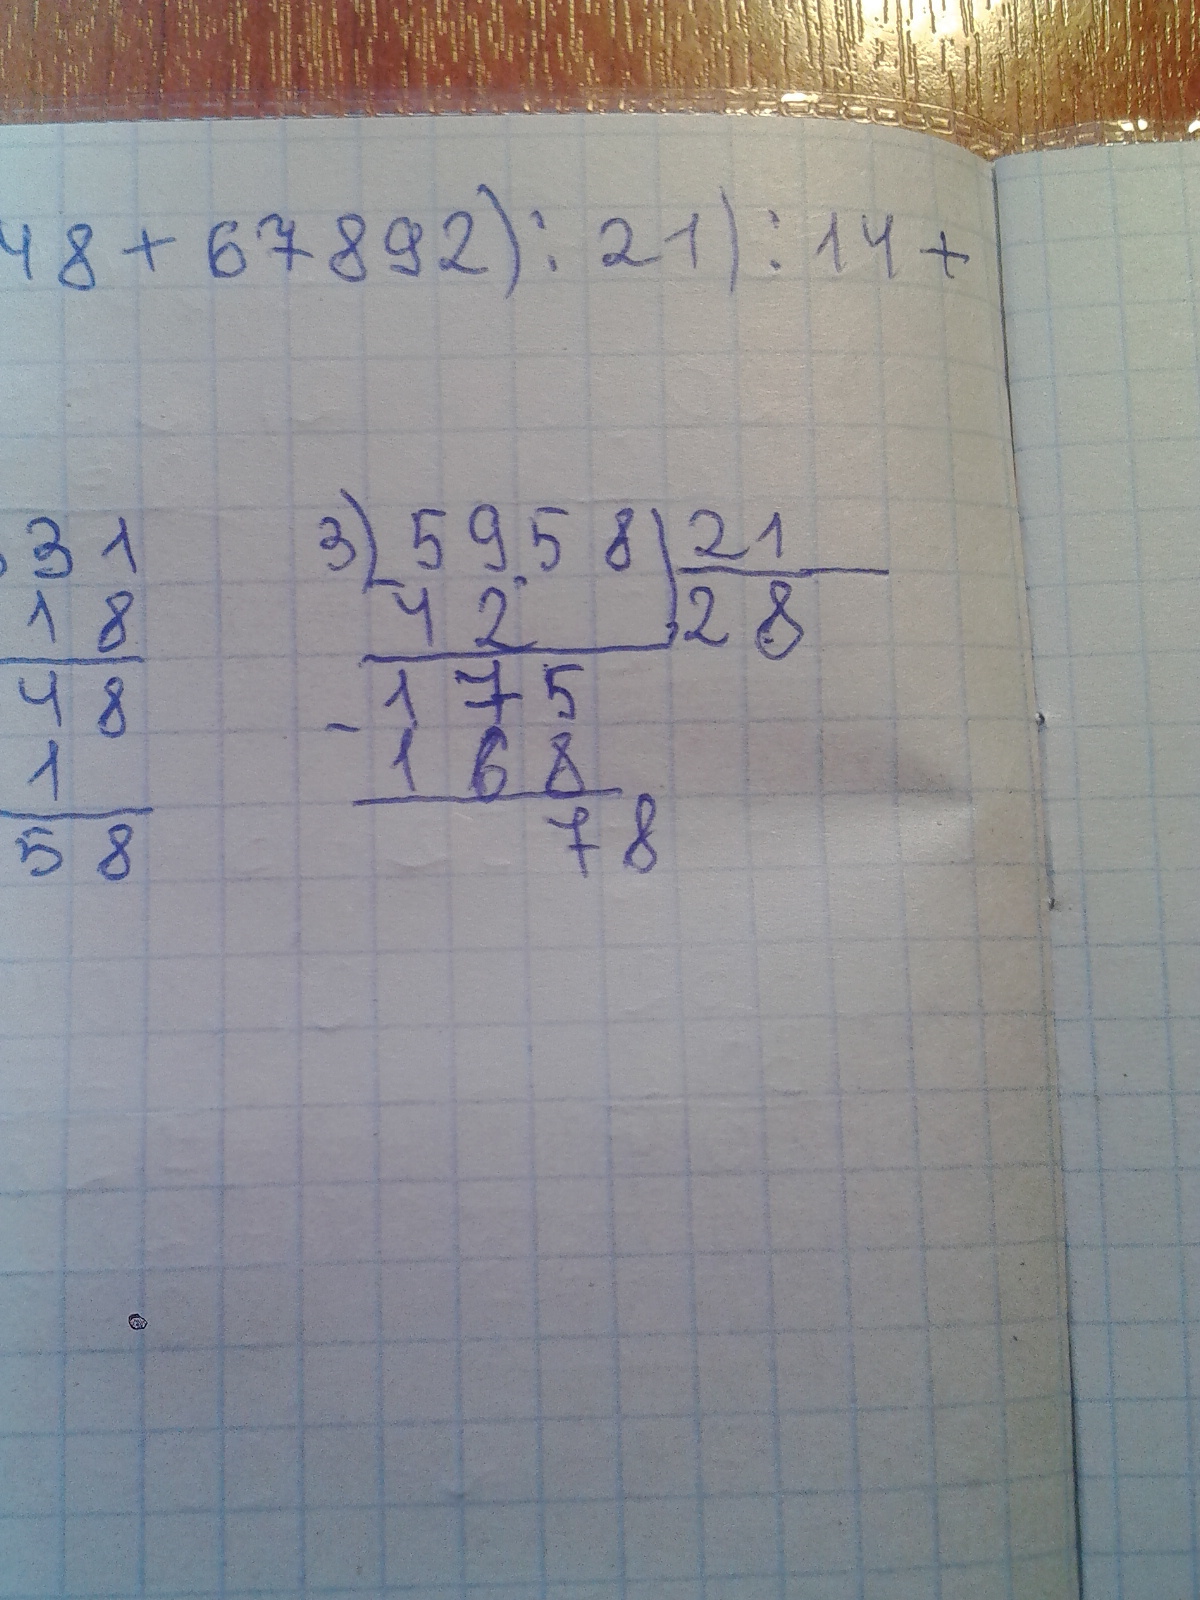 48 + 67892) : 21) : 14 +
31
18
48
1
58
3) 5958 21
42 28
175
- 168
78